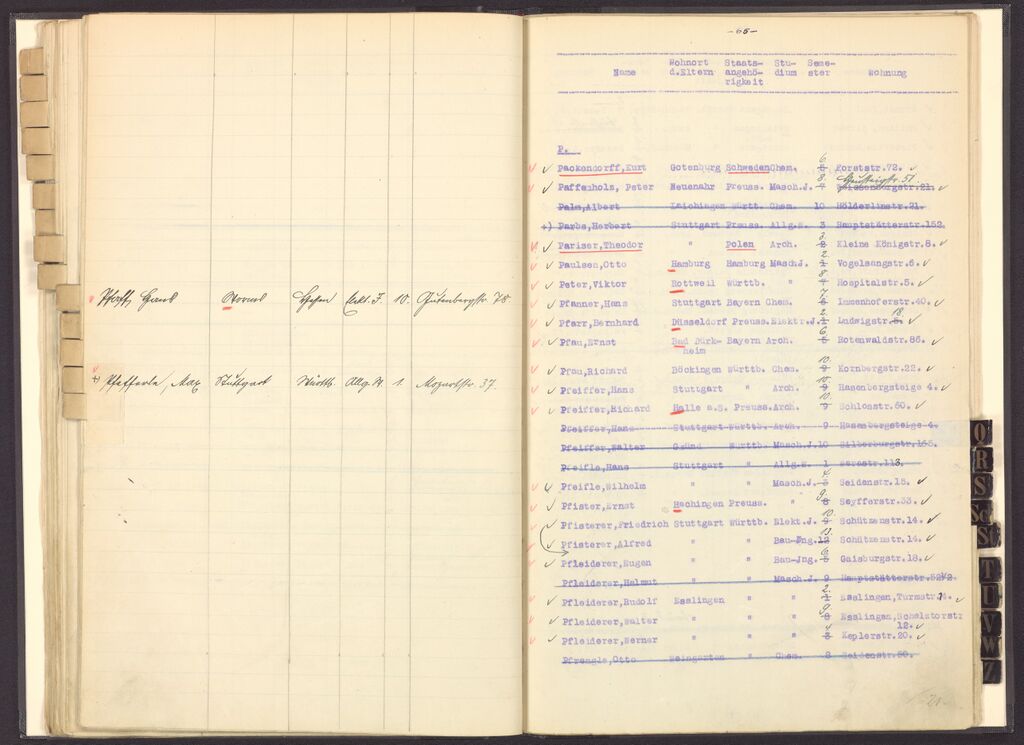 Pfaff, Hans Worms Hessen Elkt. J. 10. Gutenbergstr. 78
+) Pfefferle, Max Stuttgart Württ. Allg. W. 1. Mozartstr. 37.
-65-
Name Wohnort d.Eltern Staats-angehö-rigkeit Stu-dium Seme-ster Wohnung
P.
Packendorff,Kurt Gotenburg Schweden Chem. 6. 5 Forststr.72.
Paffenholz, Peter Neuenahr Preuss. Masch.J. 8. 7 Reichenbergstr.21. 51
Palm,Albert Laichingen Württ. Chem. 10 Hölderlinstr.21.
+) Parbs,Herbert Stuttgart Preuss. Allg.W. 3 Hauptstätterstr.152.
Pariser,Theodor " Polen Arch. 3. 2 Kleine Königstr.8.
Paulsen,Otto Hamburg Hamburg Masch.J. 2. 1 Vogelsangstr.6.
Peter,Viktor Rottweil Württb. " 8. 7 Hospitalstr.5.
Pfanner,Hans Stuttgart Bayern Chem. 7. 6 Immenhoferstr.40.
Pfarr,Bernhard Düsseldorf Preuss. Elektr.J. 2. 1 Ludwigstr. 18.
Pfau,Ernst Bad Dürk- Bayern Arch. 6. 5 Rotenwaldstr.86.
heim
Pfau,Richard Böckingen Württb. Chem. 10. 9 Kornbergstr.22.
Pfeiffer,Hans Stuttgart " Arch. 10. 9 Hasenbergsteige 4.
Pfeiffer,Richard Halle a.S. Preuss. Arch. 10. 9 Schlosstr.60.
Pfeiffer,Hans Stuttgart Württb. Arch. 9 Hasenbergsteige 4.
Pfeiffer,Walter Gmünd Württb. Masch.J. 10 Silberburgstr.165.
Pfeifle,Hans Stuttgart " Allg.W. 1 113.
Pfeifle,Wilhelm " " Masch.J. 4. 3 Seidenstr.15.
Pfister,Ernst Hechingen Preuss. " 9. 8 Seyfferstr.33.
Pfisterer,Friedrich Stuttgart Württb. Elekt.J. 10. 9 Schützenstr.14.
Pfisterer,Alfred " " Bau-Jng. 13. 12 Schützenstr.14.
Pfleiderer,Eugen " " Bau-Jng. 6. 5 Gaisburgstr.18.
Pfleiderer,Helmut " " Masch.J. 9 Hauptstätterstr.52½
Pfleiderer,Rudolf Esslingen " " 2. 1 Esslingen,Turmstr. 4.
Pfleiderer,Walter " " " 9. 8 Esslingen,Schelztorstr
12.
Pfleiderer,Werner " " " 4. 3 Keplerstr.20.
Pfrengle,Otto Weingarten " Chem. 8 Seidenstr.50.
O
R
S
Sch
St
T
U
V
W
Z